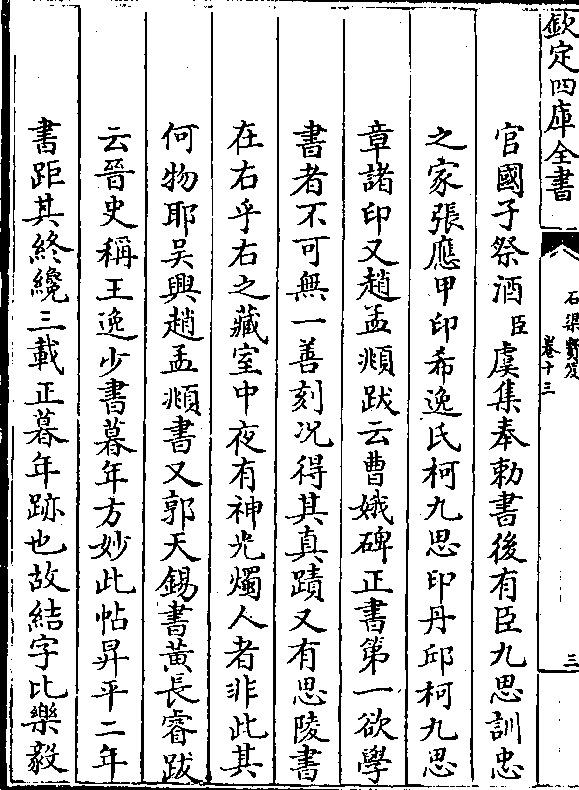 欽定四庫全書
石渠寳笈
卷十三
三
官國子祭酒臣虞集奉勅書後有臣九思訓忠
之家張應甲印希逸氏柯九思印丹邱柯九思
章諸印又趙孟頫跋云曹娥碑正書第一欲學
書者不可無一善刻况得其真蹟又有思陵書
在右乎右之藏室中夜有神光燭人者非此其
何物耶吴興趙孟頫書又郭天錫書黄長睿跋
云晉史稱王逸少書暮年方妙此帖昇平二年
書距其終纔三載正暮年跡也故結字比樂毅